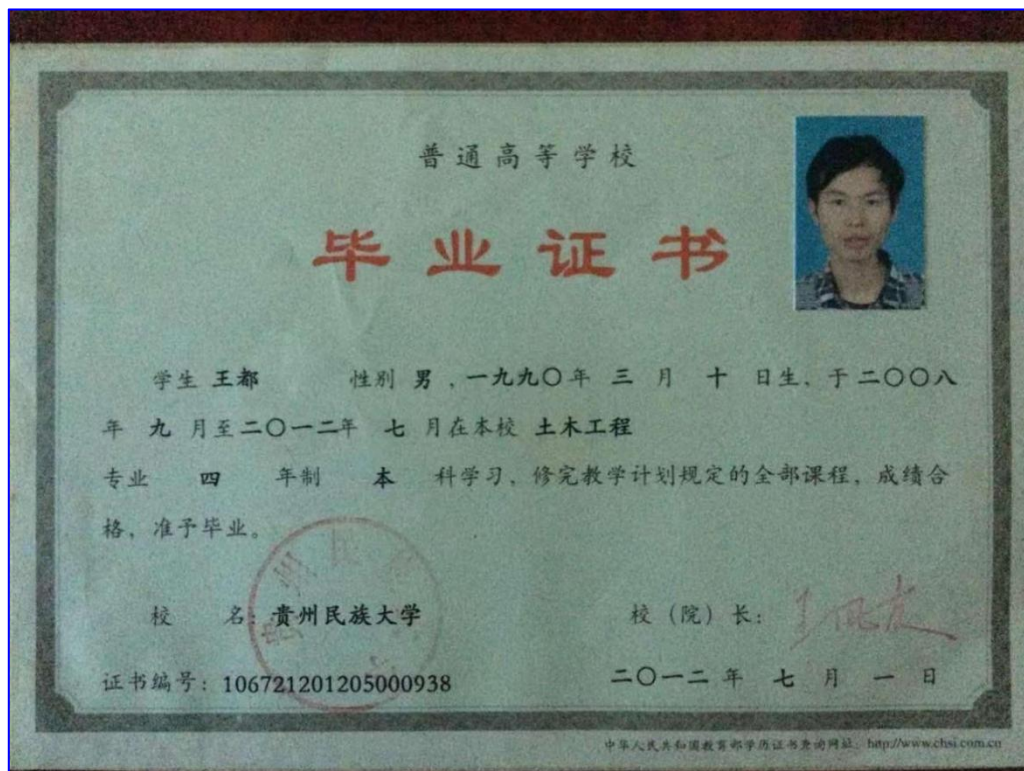 普通高等学校
毕业证书
学生 王都 性别 男 ,一九九〇年 三 月 十 日生、于二〇〇八
年 九 月至二〇一二年 七 月在本校 土木工程
专业 四 年制 本 科学习,修完教学计划规定的全部课程,成绩合
格,准予毕业。
校 名:贵州民族大学
校(院)长:
证书编号:106721201205000938
二〇一二年 七 月 一 日
中华人民共和国教育部学历证书查询网址:http://www.chsi.com.cn